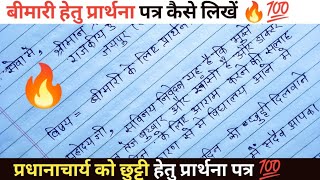 बीमारी हेतु प्रार्थना पत्र कैसे लिखें 🔥💯
सेवा में,
श्रीमान
राजकीय
जयपुर
विषय = बीमारी के लिए प्रार्थना
महोदय जी,
सविनय निवेदन यह है कि मुझे
बुखार और
के लिए आराम करने की सलाह
से मैं विद्यालय आने में
दिन की छुट्टी
मैं सदैव आपका
प्रधानाचार्य को छुट्टी हेतु प्रार्थना पत्र 💯